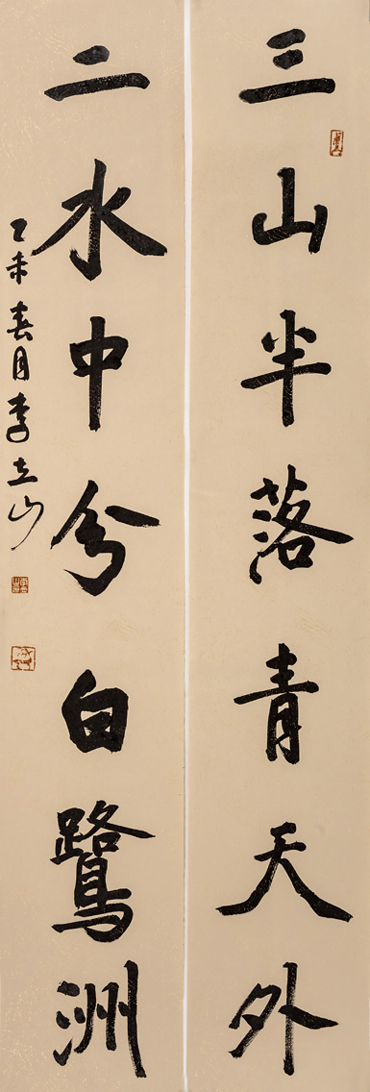 三山半落青天外
二水中分白鹭洲
乙未春月李立山